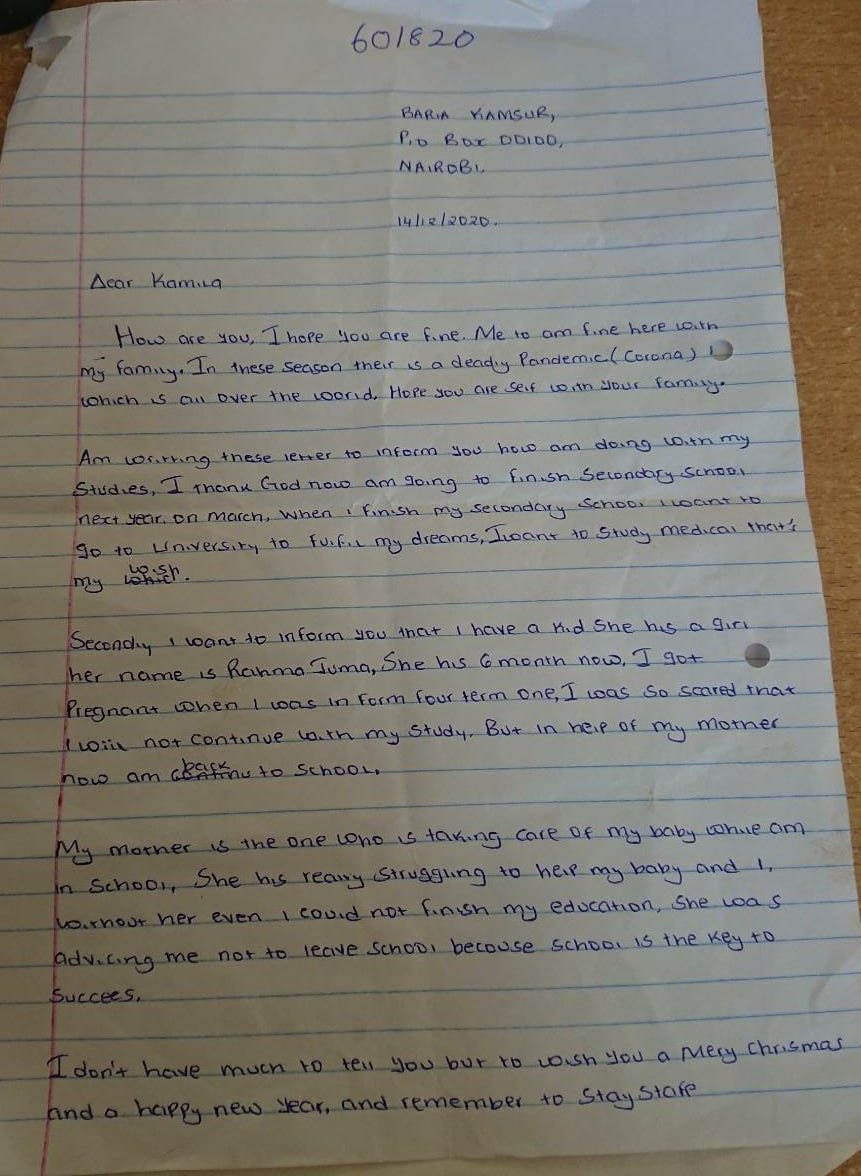 601820
BARIA KAMSUR,
P.o Box 00100,
NAIROBI.
14/12/2020.
Dear Kamila
How are you, I hope you are fine. Me to am fine here with
my family. In these season their is a deadly Pandemic (Corona)
which is all over the world. Hope you are self with your family.
Am writting these letter to inform you how am doing with my
Studies, I thank God now am going to finish Secondary School
next year on march, when i finish my secondary school i want to
go to University to fulfil my dreams, I want to study medical that's
my wish.
Secondly i want to inform you that i have a kid she his a girl
her name is Rahma Juma, She his 6 month now, I got
Pregnant when i was in form four term one, I was so scared that
i will not continue with my study. But in help of my mother
now am back to school.
My mother is the one who is taking care of my baby while am
in school, She his really struggling to help my baby and i,
without her even i could not finish my education, she was
advicing me not to leave school becouse school is the key to
succees.
I don't have much to tell you but to wish you a mery chrismas
and a happy new year, and remember to stay stafe